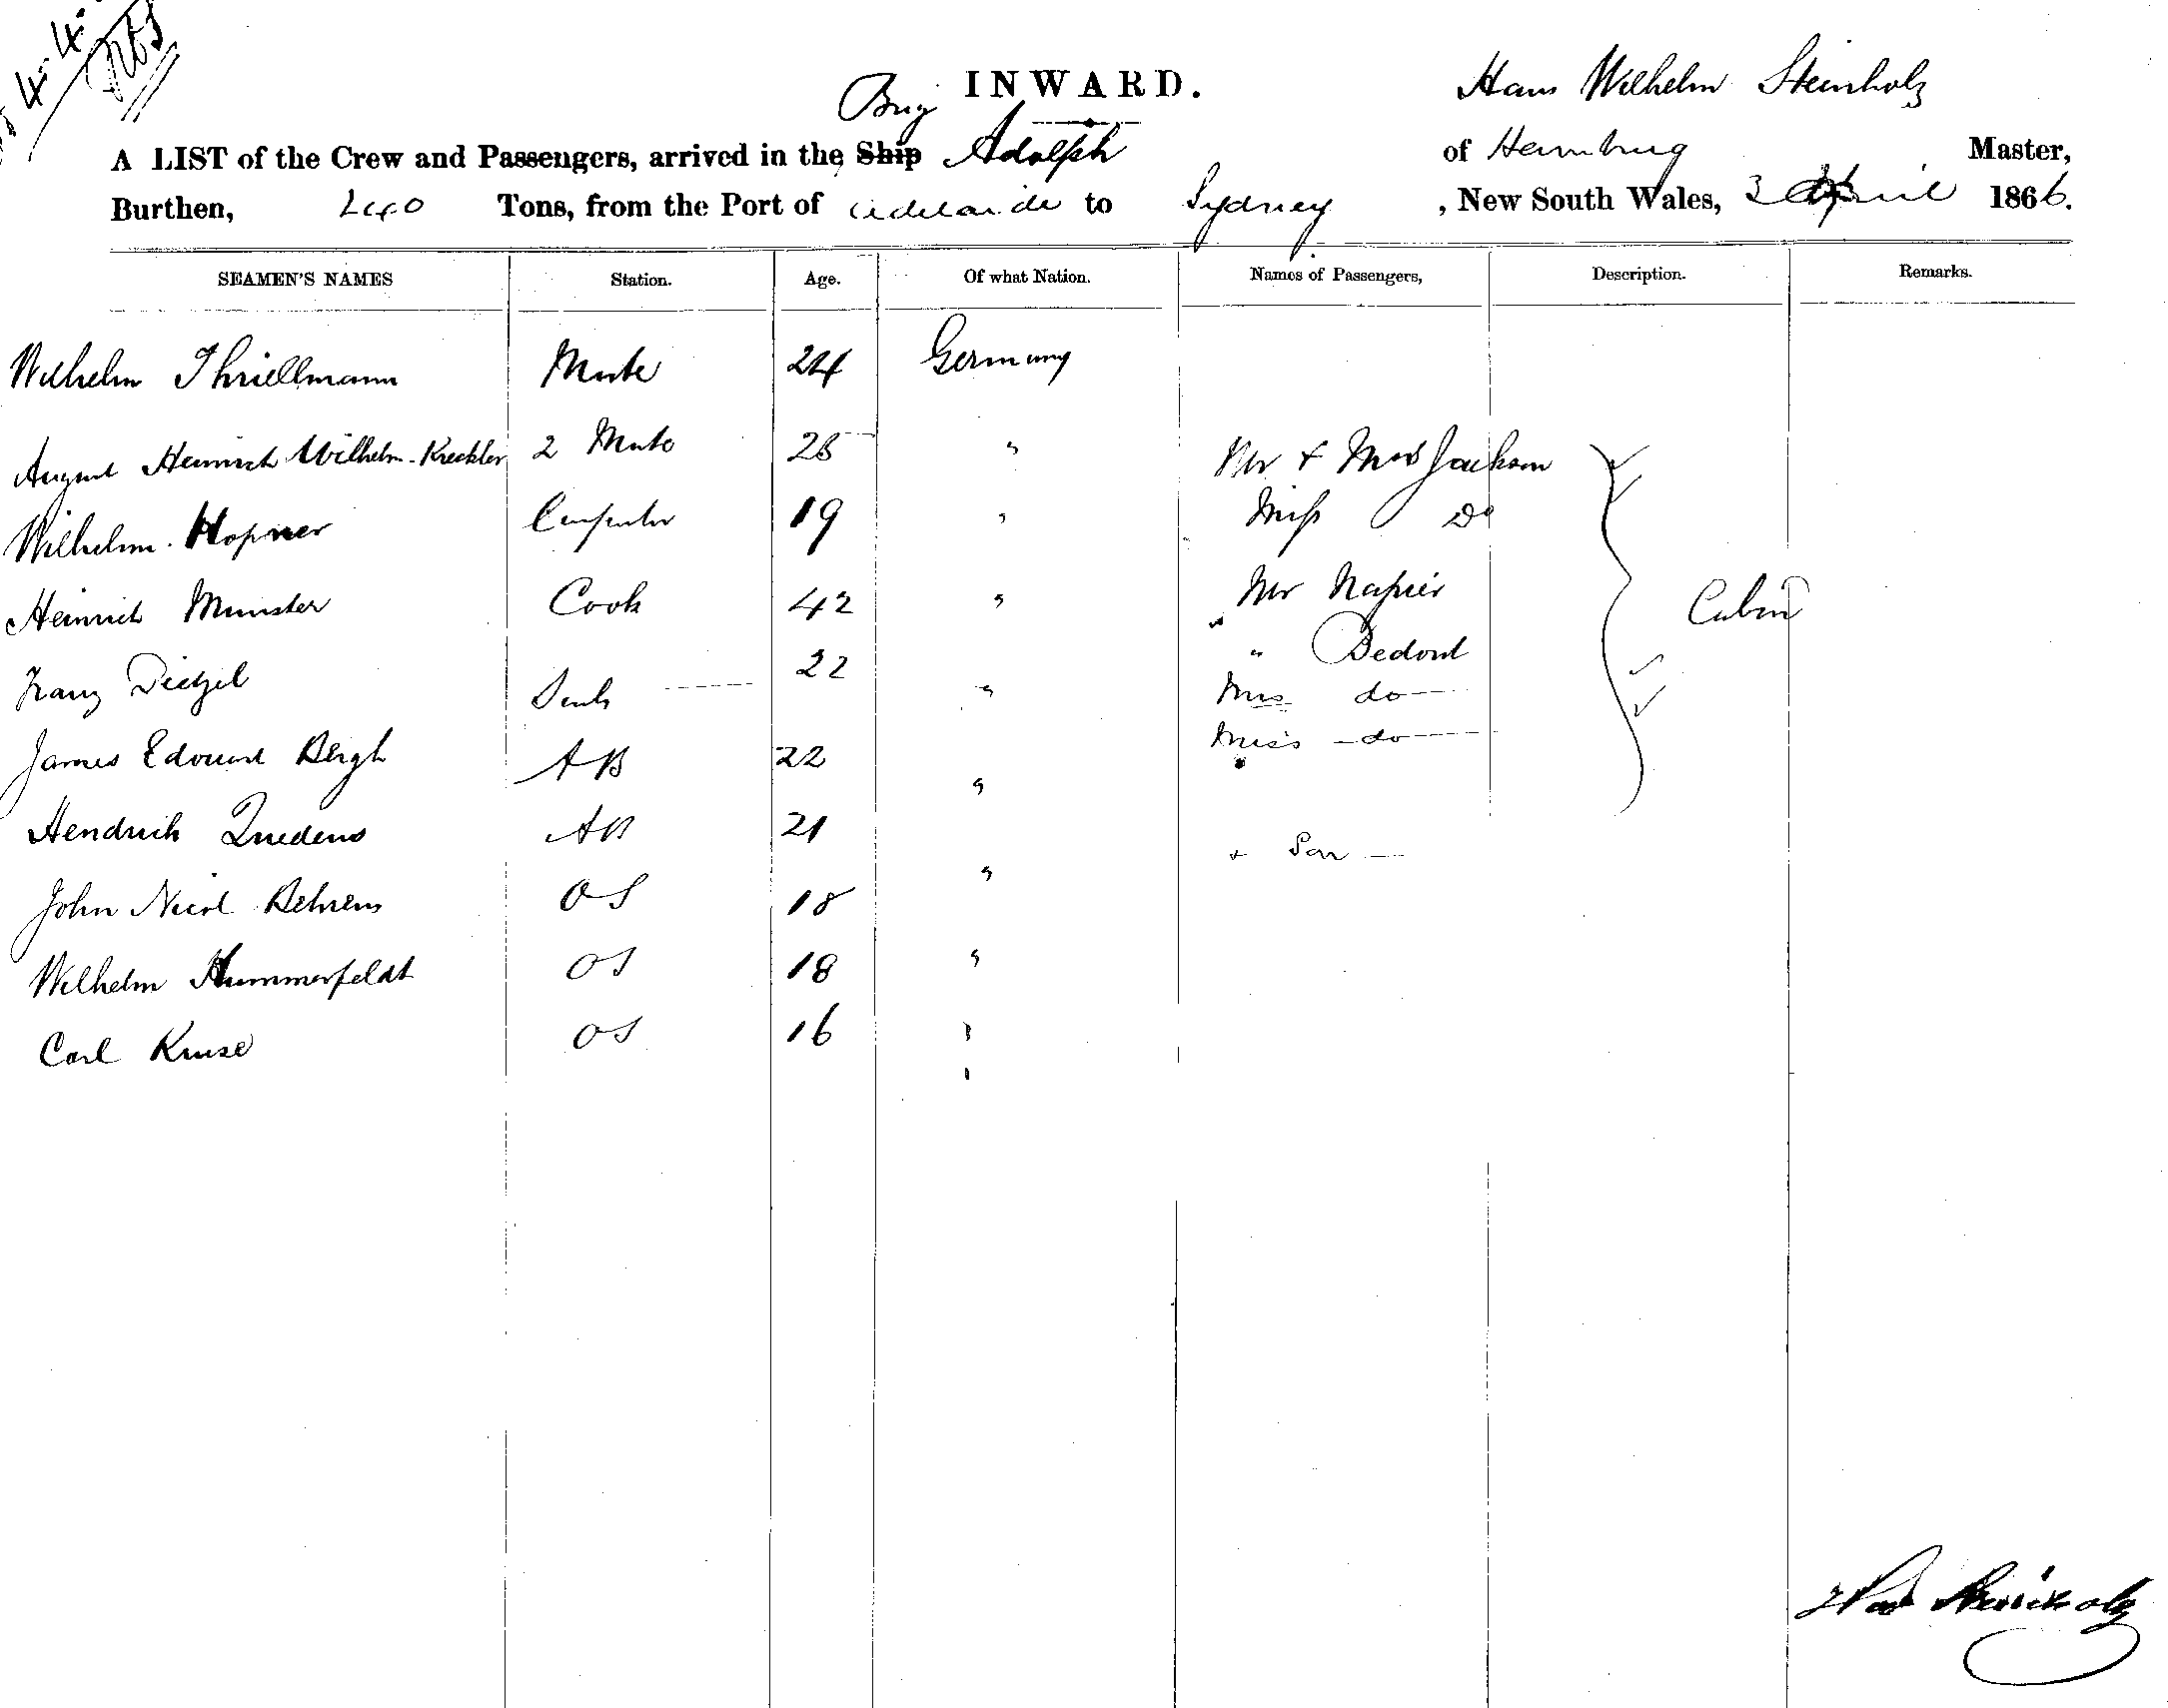 INWARD.
Brig
Hans Wilhelm Steinholz
A LIST of the Crew and Passengers, arrived in the Ship Adolph of Hamburg Master,
Burthen, 240 Tons, from the Port of Adelaide to Sydney , New South Wales, 3 April 1866.
SEAMEN'S NAMES Station. Age. Of what Nation. Names of Passengers, Description. Remarks.
Wilhelm Thriellmann Mate 24 Germany
August Heinrich Wilhelm Kreckler 2 Mate 28 " Mr & Mrs Jackson
Wilhelm Hopner Carpenter 19 " Miss Do
Heinrich Munster Cook 42 " Mr Napier Cabin
" Bedout
Franz Dietzel 22 " Mrs do
James Edouard Bergh AB 22 " Miss do
Hendrich Quedens AB 21 " + Son
John Nicol Behrens OS 18 "
Wilhelm Hummerfeldt OS 18 "
Carl Kruse OS 16 "
Steinholz